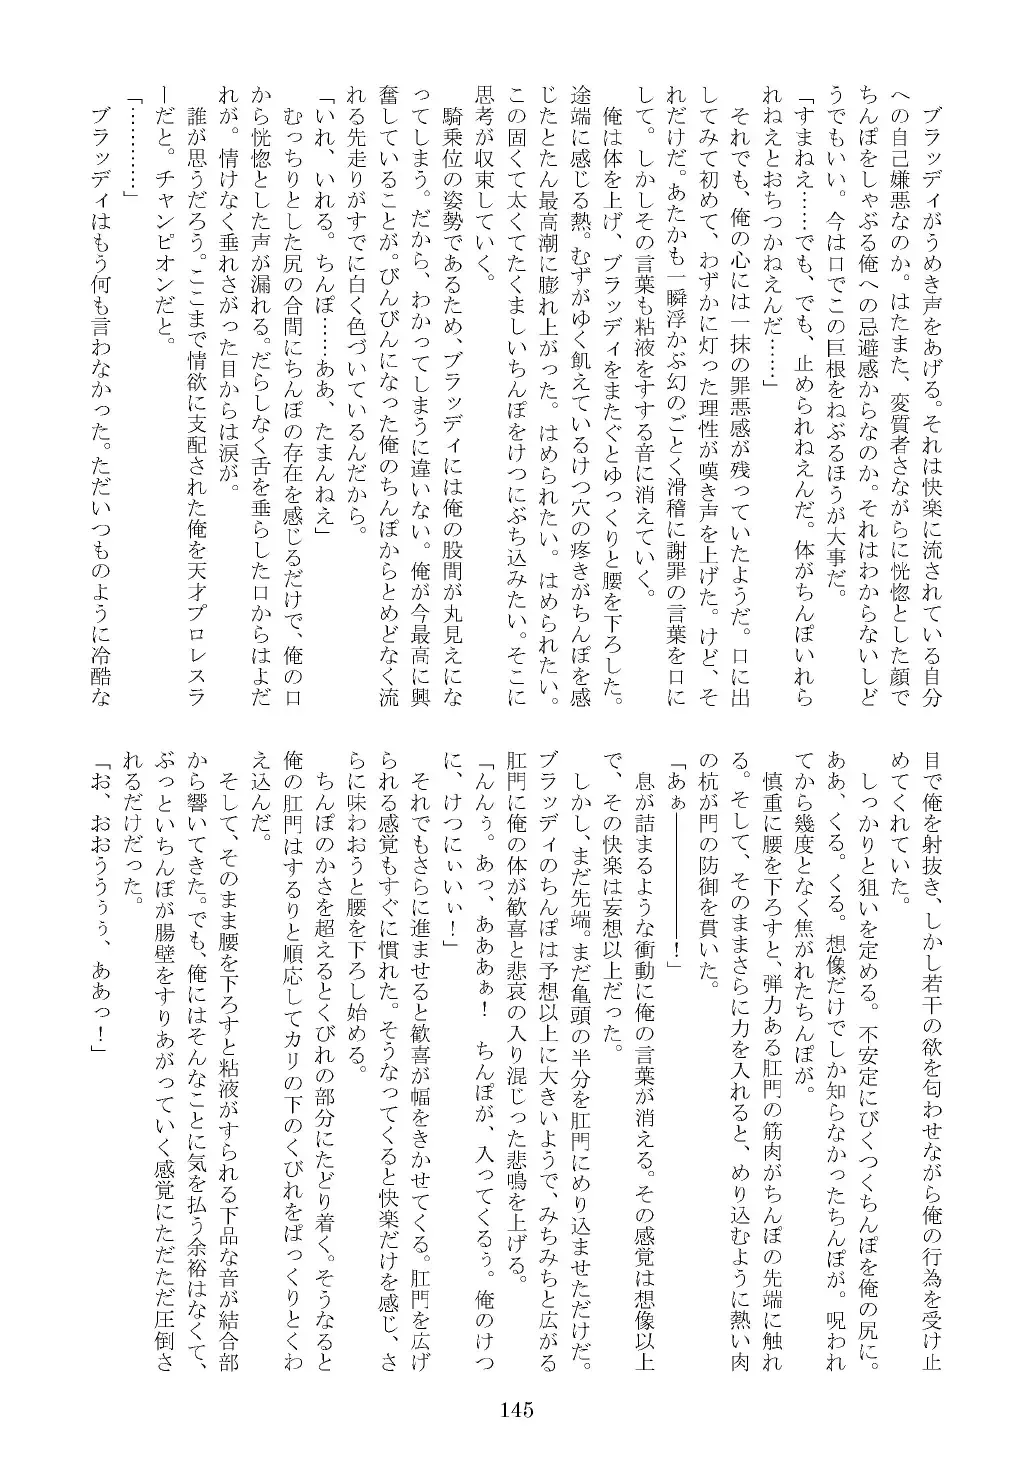 ブラッディがうめき声をあげる。それは快楽に流されている自分
への自己嫌悪なのか。はたまた、変質者さながらに恍惚とした顔で
ちんぽをしゃぶる俺への忌避感からなのか。それはわからないしど
うでもいい。今は口でこの巨根をねぶるほうが大事だ。
「すまねえ……でも、でも、止められねえんだ。体がちんぽいれら
れねえとおちつかねえんだ……」
それでも、俺の心には一抹の罪悪感が残っていたようだ。口に出
してみて初めて、わずかに灯った理性が嘆き声を上げた。けど、そ
れだけだ。あたかも一瞬浮かぶ幻のごとく滑稽に謝罪の言葉を口に
して。しかしその言葉も粘液をすする音に消えていく。
俺は体を上げ、ブラッディをまたぐとゆっくりと腰を下ろした。
途端に感じる熱。むずがゆく飢えているけつ穴の疼きがちんぽを感
じたとたん最高潮に膨れ上がった。はめられたい。はめられたい。
この固くて太くてたくましいちんぽをけつにぶち込みたい。そこに
思考が収束していく。
騎乗位の姿勢であるため、ブラッディには俺の股間が丸見えにな
ってしまう。だから、わかってしまうに違いない。俺が今最高に興
奮していることが。びんびんになった俺のちんぽからとめどなく流
れる先走りがすでに白く色づいているんだから。
「いれ、いれる。ちんぽ……ああ、たまんねえ」
むっちりとした尻の合間にちんぽの存在を感じるだけで、俺の口
から恍惚とした声が漏れる。だらしなく舌を垂らした口からはよだ
れが。情けなく垂れさがった目からは涙が。
誰が思うだろう。ここまで情欲に支配された俺を天才プロレスラ
ーだと。チャンピオンだと。
「…………」
ブラッディはもう何も言わなかった。ただいつものように冷酷な
目で俺を射抜き、しかし若干の欲を匂わせながら俺の行為を受け止
めてくれていた。
しっかりと狙いを定める。不安定にびくつくちんぽを俺の尻に。
ああ、くる。くる。想像だけでしか知らなかったちんぽが。呪われ
てから幾度となく焦がれたちんぽが。
慎重に腰を下ろすと、弾力ある肛門の筋肉がちんぽの先端に触れ
る。そして、そのままさらに力を入れると、めり込むように熱い肉
の杭が門の防御を貫いた。
「あぁ――――――！」
息が詰まるような衝動に俺の言葉が消える。その感覚は想像以上
で、その快楽は妄想以上だった。
しかし、まだ先端。まだ亀頭の半分を肛門にめり込ませただけだ。
ブラッディのちんぽは予想以上に大きいようで、みちみちと広がる
肛門に俺の体が歓喜と悲哀の入り混じった悲鳴を上げる。
「んんぅ。あっ、あああぁ！　ちんぽが、入ってくるぅ。俺のけつ
に、けつにぃいぃ！」
それでもさらに進ませると歓喜が幅をきかせてくる。肛門を広げ
られる感覚もすぐに慣れた。そうなってくると快楽だけを感じ、さ
らに味わおうと腰を下ろし始める。
ちんぽのかさを超えるとくびれの部分にたどり着く。そうなると
俺の肛門はするりと順応してカリの下のくびれをぱっくりとくわ
え込んだ。
そして、そのまま腰を下ろすと粘液がすられる下品な音が結合部
から響いてきた。でも、俺にはそんなことに気を払う余裕はなくて、
ぶっといちんぽが腸壁をすりあがっていく感覚にただただ圧倒さ
れるだけだった。
「お、おおうううぅ、ああっ！」
145